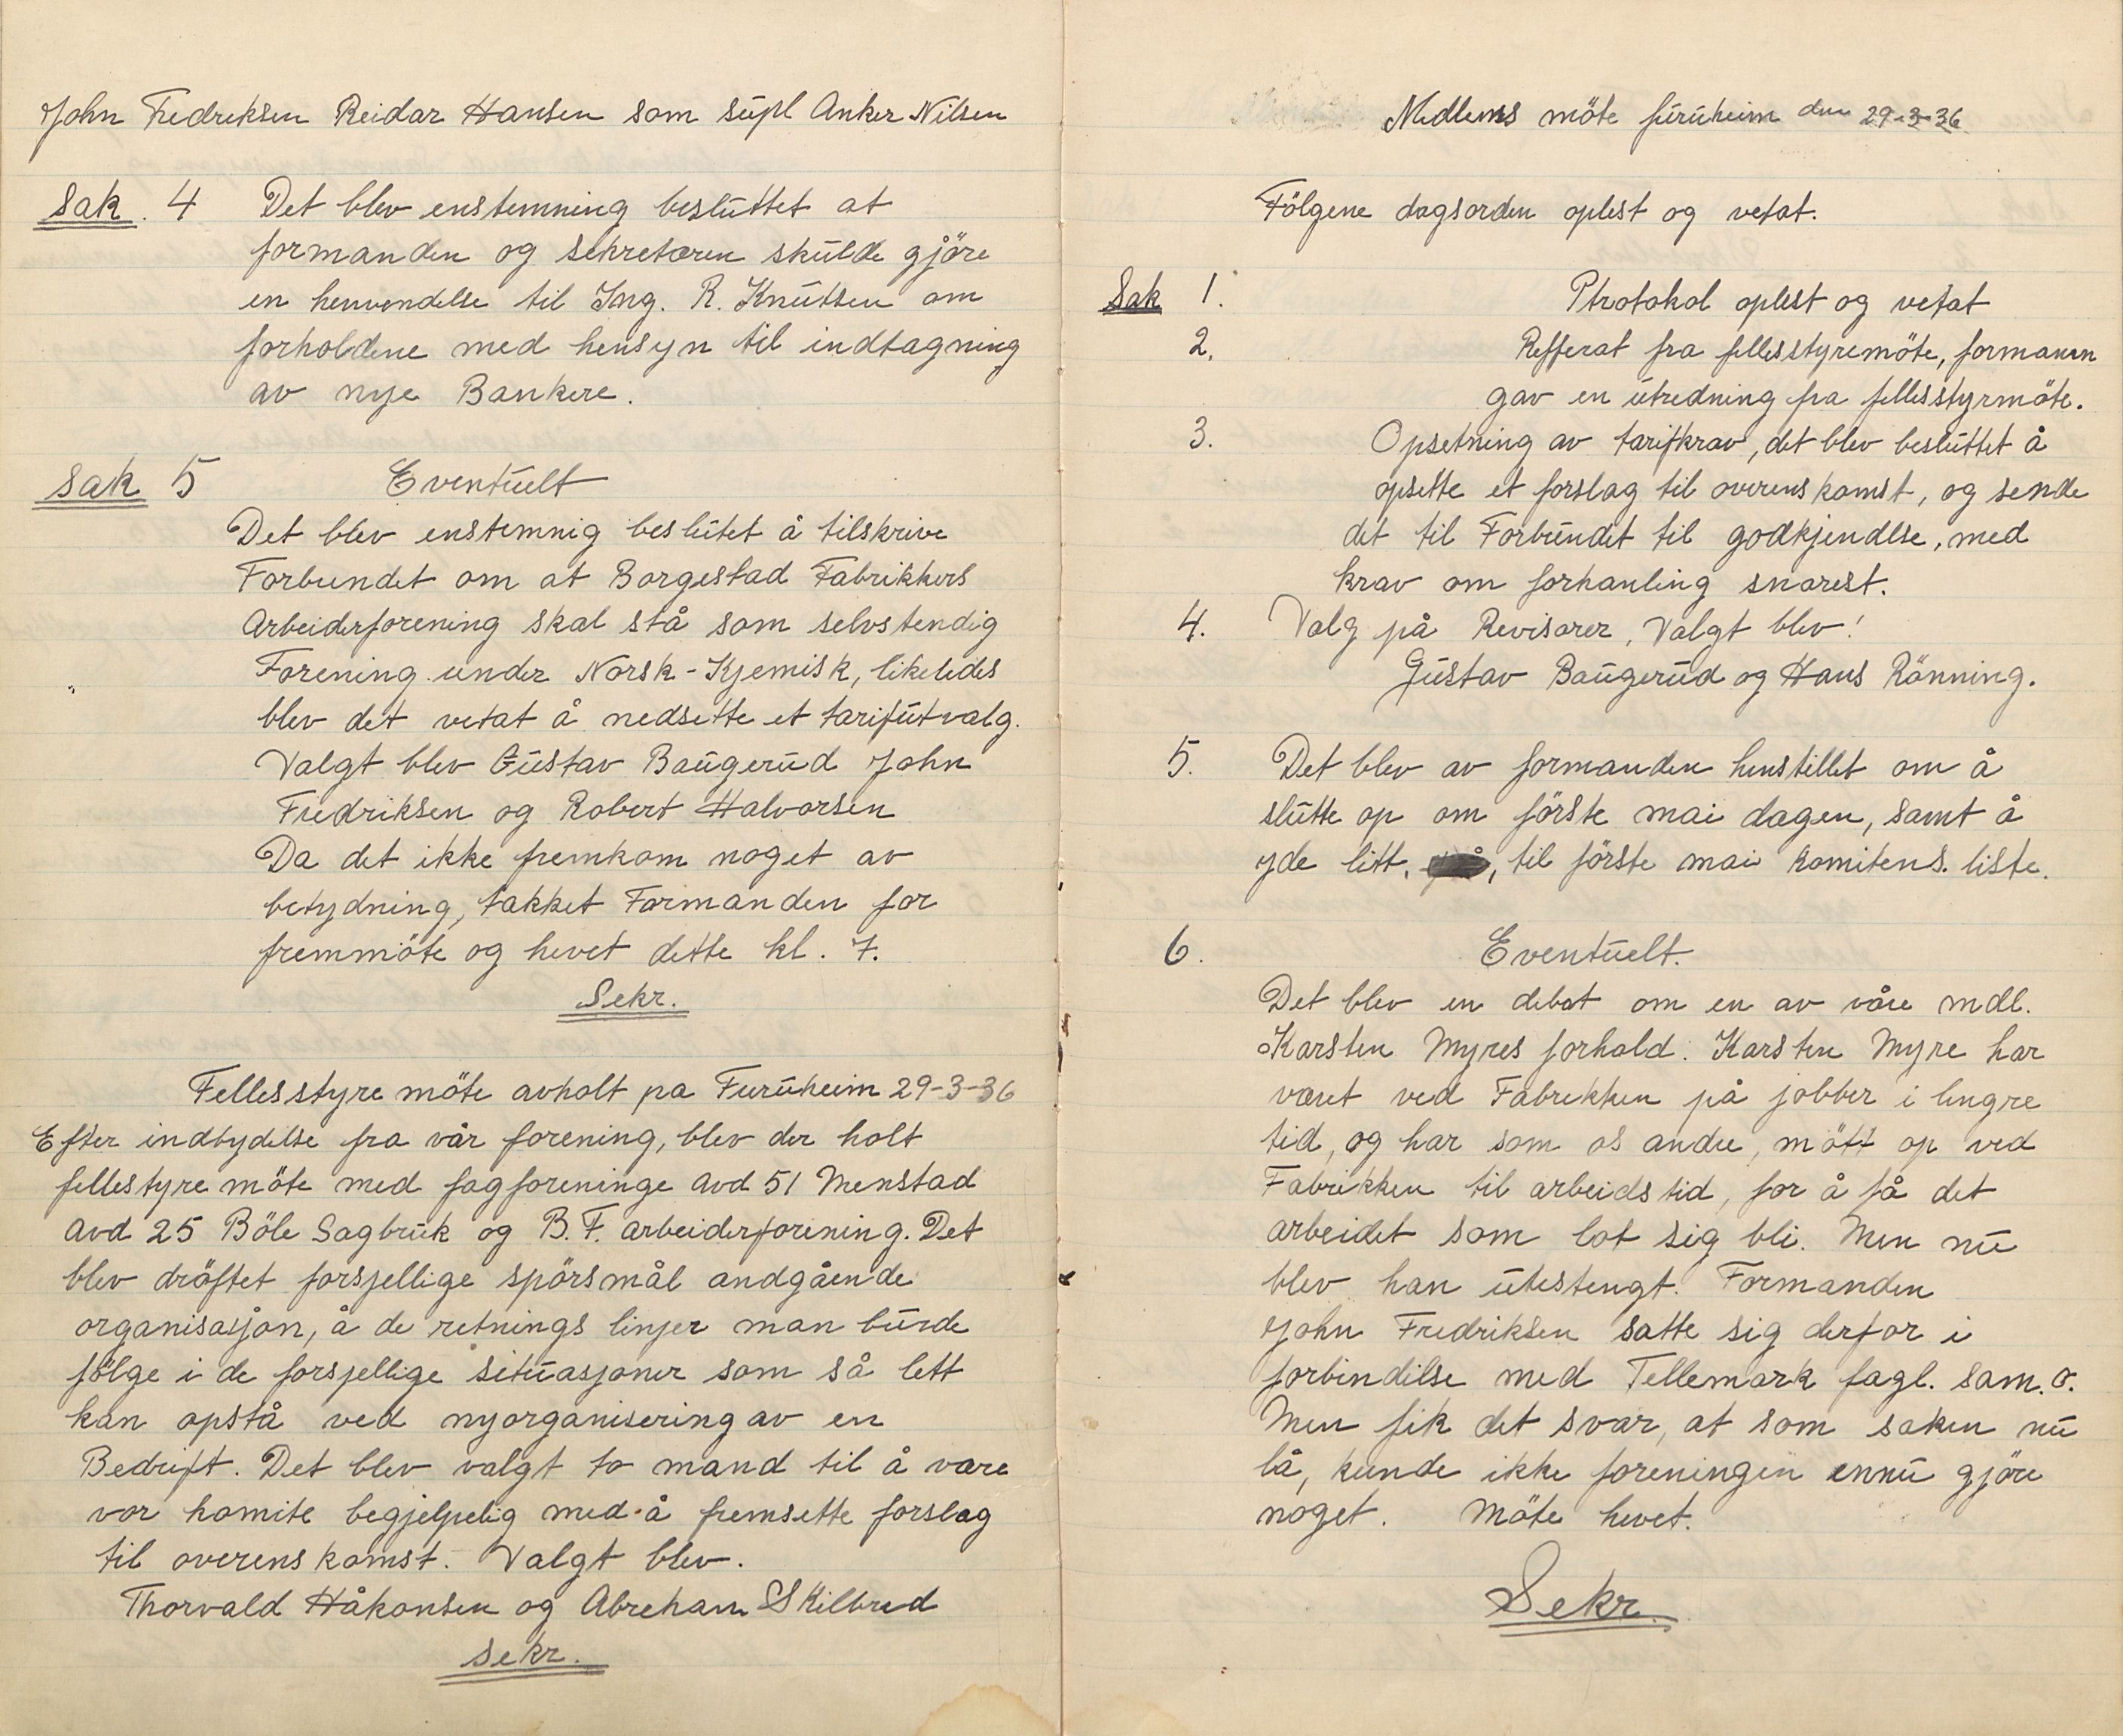 John Fredriksen Reidar Hansen som supl Anker Nilsen
Sak. 4 Det blev enstemning besluttet at
formanden og sekretæren skulde gjöre
en henvendelse til Ing. R. Knutsen om
forholdene med hensyn til indtagning
av nye Bankere.
Sak 5 Eventuelt
Det blev enstemnig beslutet å tilskrive
Forbundet om at Borgestad Fabrikkers
Arbeiderforening skal stå som selvstendig
Forening under Norsk-Kjemisk, likeledes
blev det vetat å nedsette et tarifutvalg.
Valgt blev Gustav Baugerud John
Fredriksen og Robert Halvorsen
Da det ikke fremkom noget av
betydning, takket Formanden for
fremmöte og hevet dette kl. 7.
Sekr.
Fellesstyre möte avholt pa Furuheim 29-3-36
Efter indbydelse fra vår forening, blev der holt
fellestyre möte med fagforeninge Avd 51 Menstad
Avd 25 Böle Sagbruk og B. F. arbeiderforening. Det
blev dröftet forsjellige spörsmål andgående
organisasjon, å de retnings linjer man burde
fölge i de forsjellige situasjoner som så lett
kan opstå ved nyorganisering av en
Bedrift. Det blev valgt to mand til å være
vor komite begjelpelig med å fremsette forslag
til overenskomst. Valgt blev.
Thorvald Håkonsen og Abreham Skilbred
sekr.
Medlems möte furuheim den 29-3-36
Fölgene dagsorden oplest og vetat.
Sak 1. Ptrotokol oplest og vetat
2. Refferat fra fellesstyremöte, formanen
gav en utredning fra fellesstyrmöte.
3. Opsetning av tarifkrav, det blev besluttet å
opsette et forslag til overenskomst, og sende
det til Forbundet til godkjendlse, med
krav om forhanling snarest.
4. Valg på Revisorer, Valgt blev!
Gustav Baugerud og Hans Rönning.
5. Det blev av formanden henstillet om å
slutte op om förste mai dagen, samt å
yde litt, til förste mai komitens. liste.
6. Eventuelt.
Det blev en debat om en av våre mdl.
Karsten Myres forhold. Karsten Myre har
været ved Fabrikken på jobber i lengre
tid, og har som os andre, mött op ved
Fabrikken til arbeidstid, for å få det
arbeidet som lot sig bli. Men nu
blev han utestengt. Formanden
John Fredriksen satte sig derfor i
forbindelse med Tellemark fagl. sam. o.
Men fik det svar, at som saken nu
lå, kunde ikke foreningen ennu gjöre
noget. Möte hevet.
Sekr.